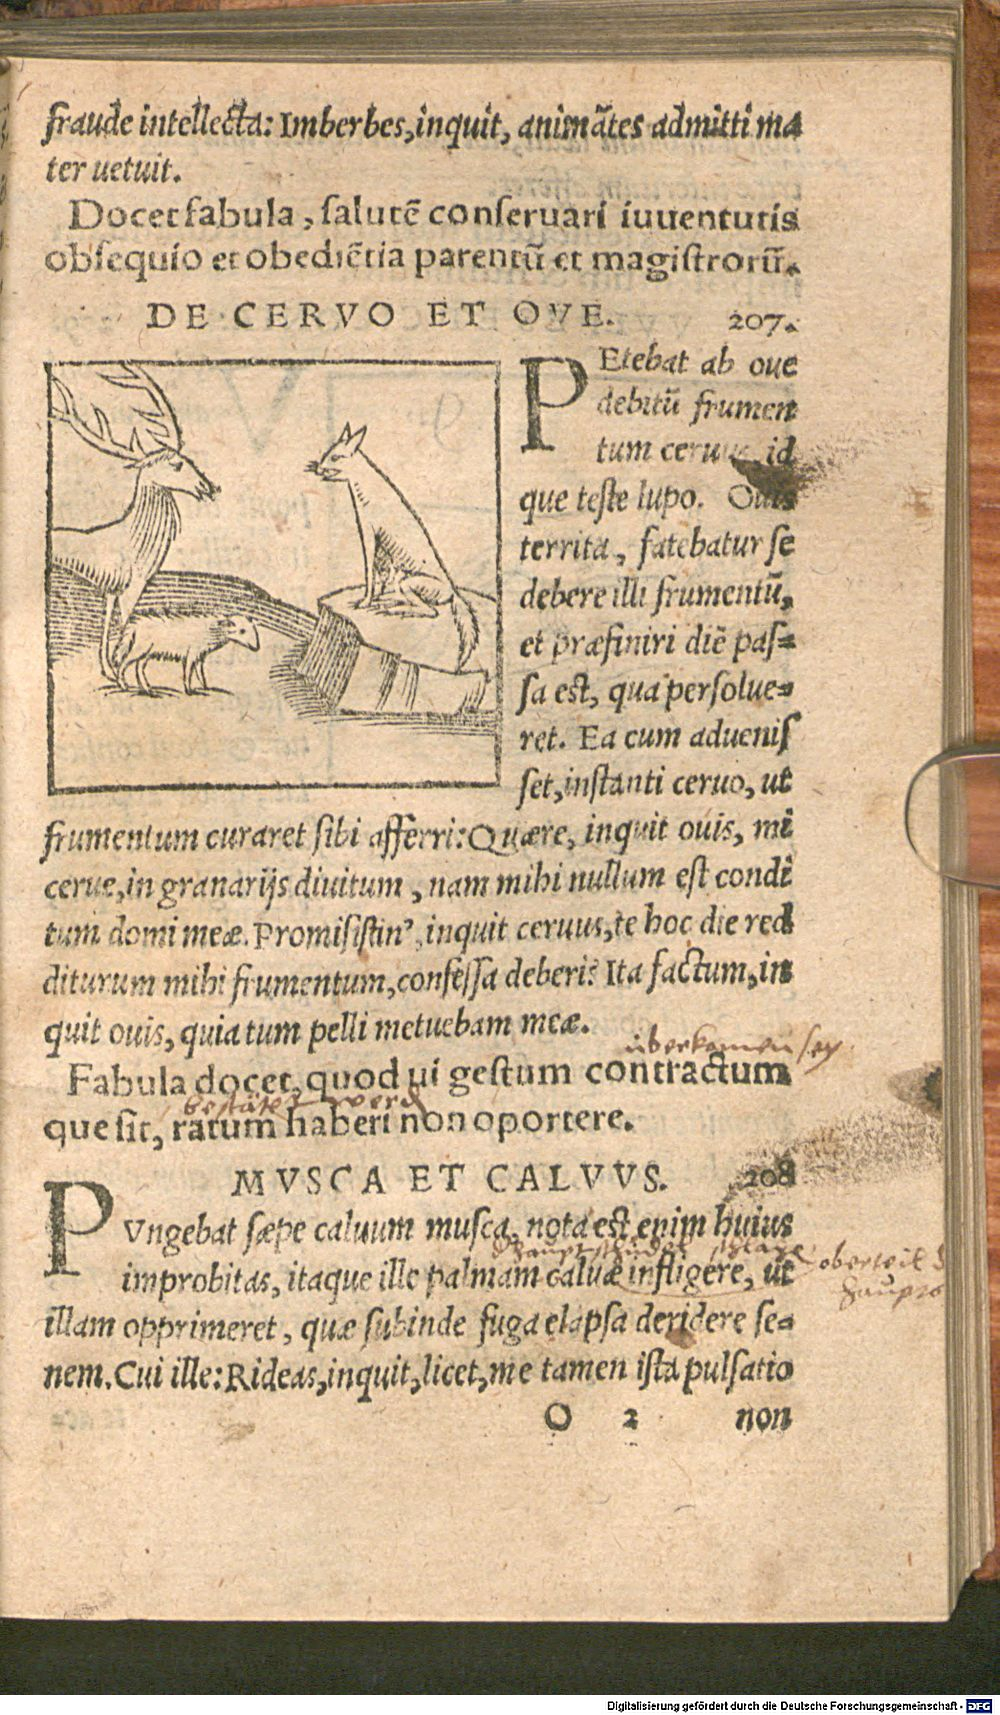 fraude intellecta: Imberbes, inquit, animātes admitti ma
ter uetuit.
Docet fabula, salutē conseruari iuuentutis
obsequio et obediētia parentū et magistrorū.
DE CERVO ET OVE. 207.
PEtebat ab oue
debitū frumen
tum ceruus, id
que teste lupo. Ouis
territa, fatebatur se
debere illi frumentū,
et præfiniri diē pas-
sa est, qua persolue-
ret. Ea cum aduenis
set, instanti ceruo, ut
frumentum curaret sibi afferri: Quære, inquit ouis, mi
cerue, in granarijs diuitum, nam mihi nullum est condi
tum domi meæ. Promisistin', inquit ceruus, te hoc die red
diturum mihi frumentum, confessa deberi? Ita factum, in
quit ouis, quia tum pelli metuebam meæ.
überkomen sey
Fabula docet, quod ui gestum contractum
bestätet werd
que sit, ratum haberi non oportere.
MVSCA ET CALVVS. 208
PVngebat sæpe caluum musca, nota est enim huius
improbitas, itaque ille palmam caluæ infligere, ut
oberteil
illam opprimeret, quæ subinde fuga elapsa deridere se-
nem. Cui ille: Rideas, inquit, licet, me tamen ista pulsatio
O 2 non
Digitalisierung gefördert durch die Deutsche Forschungsgemeinschaft - DFG